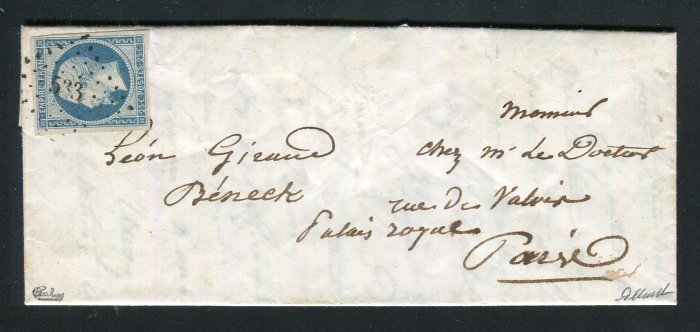 EMPIRE FRANC
POSTES
25
533
Monsieur
Léon Giraud chez Mr le Docteur
Béneck
rue de Valois
Palais royal
Paris